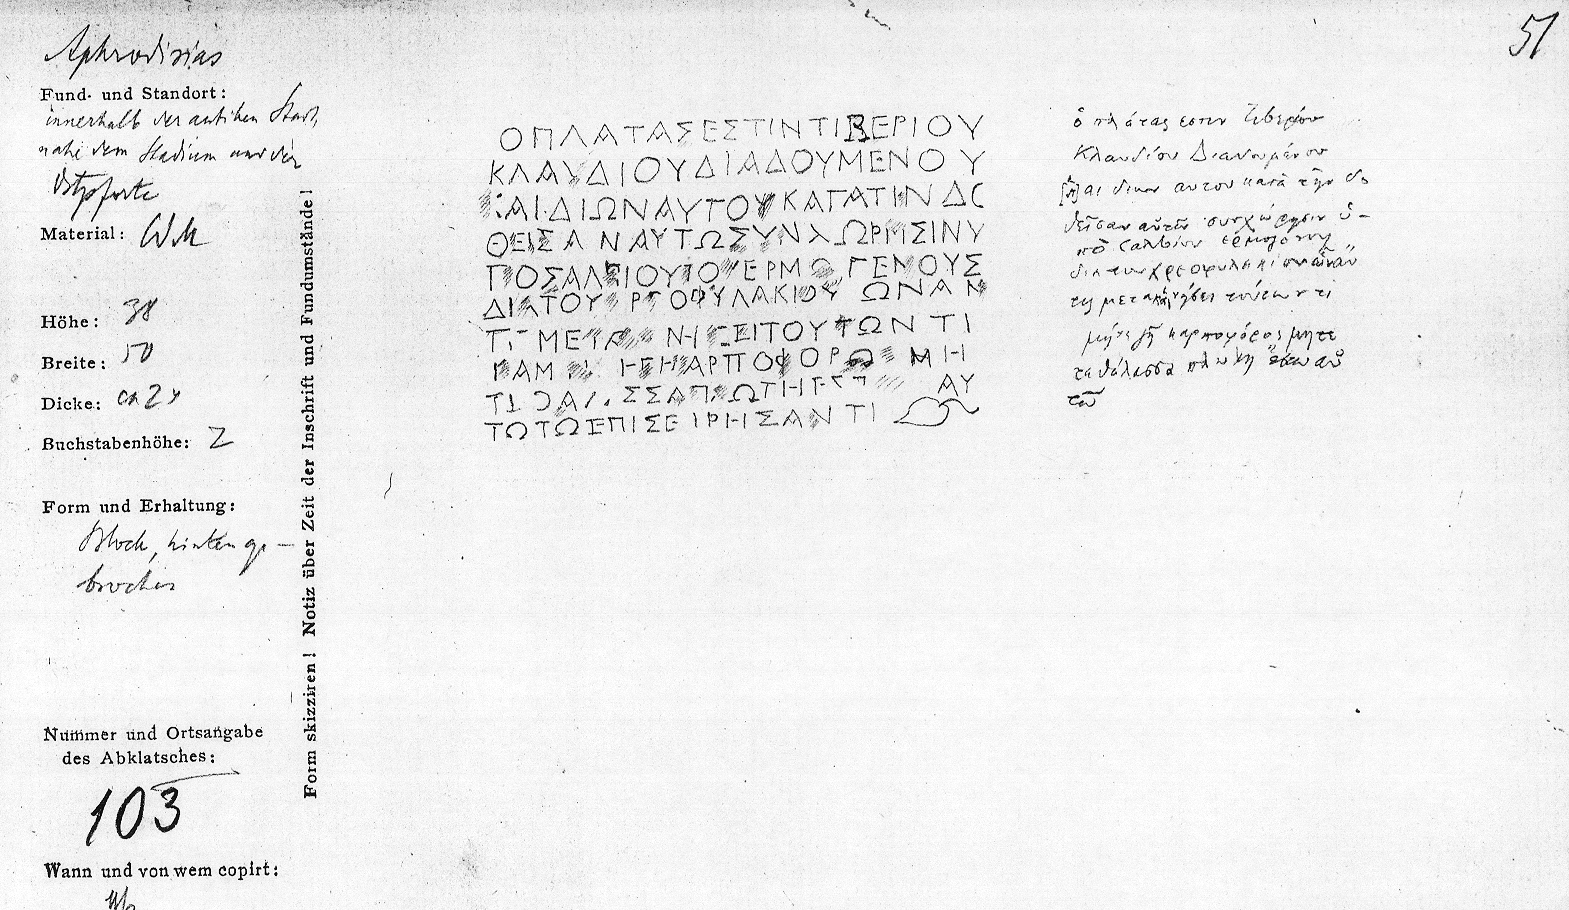 51
Aphrodisias
Fund- und Standort:
innerhalb der antiken Stadt,
nahe dem Stadium und der
Ostpforte
Material: W M
Höhe: 38
Breite: 50
Dicke: ca 24
Buchstabenhöhe: 2
Form und Erhaltung:
Block, hinten ge-
brochen
Nummer und Ortsangabe
des Abklatsches:
103
Wann und von wem copirt:
Form skizziren! Notiz über Zeit der Inschrift und Fundumstände!
ΟΠΛΑΤΑΣΕΣΤΙΝΤΙΒΕΡΙΟΥ
ΚΛΑΥΔΙΟΥΔΙΑΔΟΥΜΕΝΟΥ
ΑΙΔΙΩΝΑΥΤΟΥΚΑΓΑΤΙΝΔΟ
ΘΕΙΣΑΝΑΥΤΩΣΥΝΧΩΡΗΣΙΝΥ
ΠΟΣΑΛΒΙΟΥΤΟΥΕΡΜΟΓΕΝΟΥΣ
ΔΙΑΤΟΥ ΡΓΟΦΥΛΑΚΙΟΥ ΩΝΑΝ
ΤΙ ΜΕΤΑ ΝΗΣΕΙΤΟΥΤΩΝ ΤΙ
ΑΜ ΗΓΗΑΡΠΟΦΟΡΟ ΜΗ
ΣΣΑΠΛΩΤΗΕΣΤ ΑΥ
ΤΩΤΩΕΠΙΣΕΙΡΗΣΑΝΤΙ
ὁ πλάτας εστιν Τιβερίου
Κλαυδίου Διαδουμένου
[κ]αι ιδιων αυτου κατὰ τὴν δο
θεῖσαν αὐτῶ συνχώρησιν ὑ-
πὸ Σαλβίου ἑρμογένους
δια του χρεοφυλακίου ὧν ἄν
τις μετακινήσει τούτων τι
μήτε γῆ καρποφόρος μητε
τα θάλασσα πλωτὴ ἔσται αὐ
τῶ